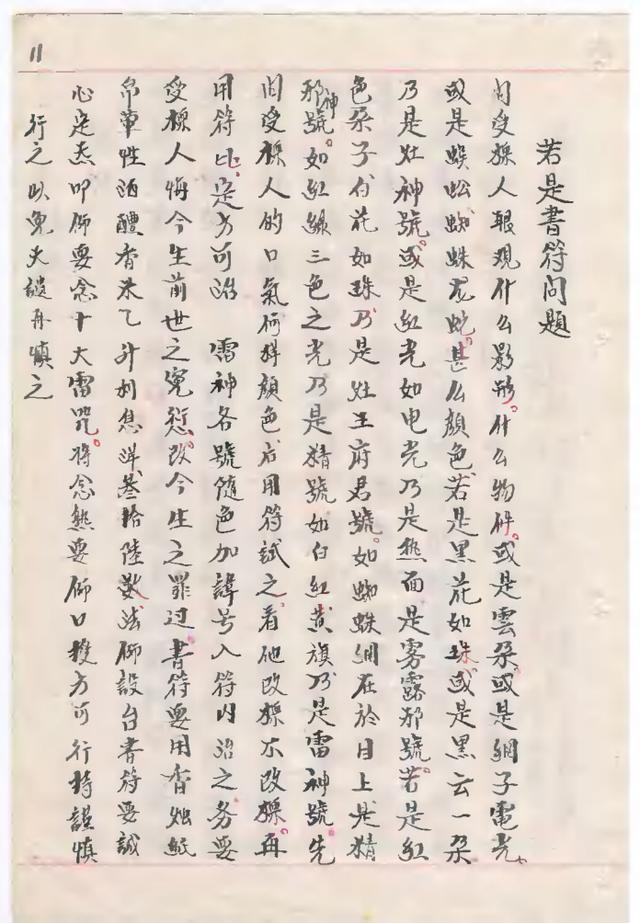 11
若是書符問題
问受 人眼观什么影形。什么物件。或是雲朵。或是網子電光、
或是蜈蚣蜘蛛龙蛇。甚么顔色若是黑花如珠或是黑云一朵
乃是灶神號。或是紅光如电光乃是熱面是雾露邪號。若是紅
色朵子白花如珠乃是灶王府君號。如蜘蛛網在於目上是精
邪神號。如紅綠三色之光乃是精號如白紅黄旗乃是雷神號。先
问受 人的口氣何样顔色后用符試之。看他改 不改 。再
用符 定方可治 雷神各號隨色加諱号入符内治之。务要
受 人悔今生前世之冤愆。改今生之罪过。書符要用香烛紙
帛 牲酒醴香米乙升利息洋叁拾陸數法師設台書符要誠
心定 叩師要念十大雷咒。将念熟要師口授方可行持謹慎
行之以免天譴再慎之